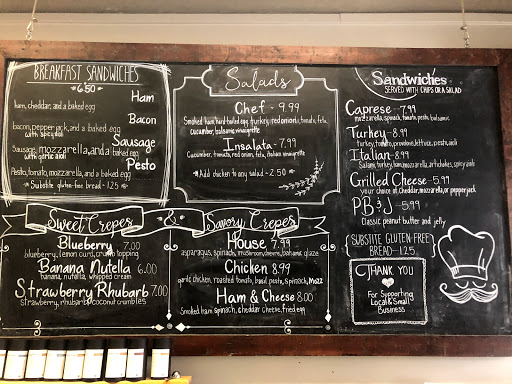 BREAKFAST SANDWICHES
6.50
Ham
ham, cheddar, and a baked egg
Bacon
bacon, pepper jack, and a baked egg
with spicy aioli
Sausage
Sausage, mozzarella, and a baked egg
with garlic aioli
Pesto
Pesto, tomato, mozzarella, and a baked egg
Substitute gluten-free bread - 1.25
Salads
Chef - 9.99
Smoked ham, hard boiled egg, turkey, red onion, tomato, feta,
cucumber, balsamic vinaigrette
Insalata - 7.99
Cucumber, tomato, red onion, feta, Italian vinaigrette
Add chicken to any salad - 2.50
Sandwiches
SERVED WITH CHIPS OR A SALAD
Caprese - 7.99
mozzarella, spinach, tomato, pesto, balsamic
Turkey - 8.99
turkey, tomato, provolone, lettuce, pesto, aioli
Italian - 8.99
Salami, turkey, ham, mozzarella, artichokes, spicy aioli
Grilled Cheese - 5.99
your choice of: Cheddar, mozzarella, or pepperjack
PB & J - 5.99
Classic peanut butter and jelly
SUBSTITE GLUTEN-FREE
BREAD - 1.25
THANK YOU
For Supporting
Local & Small
Business
Sweet Crepes & Savory Crepes
Blueberry 7.00
blueberry, lemon curd, crumb topping
Banana Nutella 6.00
banana, nutella, whipped cream
Strawberry Rhubarb 7.00
strawberry, rhubarb, coconut crumbles
House 7.99
asparagus, spinach, mushroom, chevre, balsamic glaze
Chicken 8.99
garlic chicken, roasted tomato, basil pesto, spinach, Mozz
Ham & Cheese 8.00
Smoked ham, spinach, cheddar cheese, fried egg